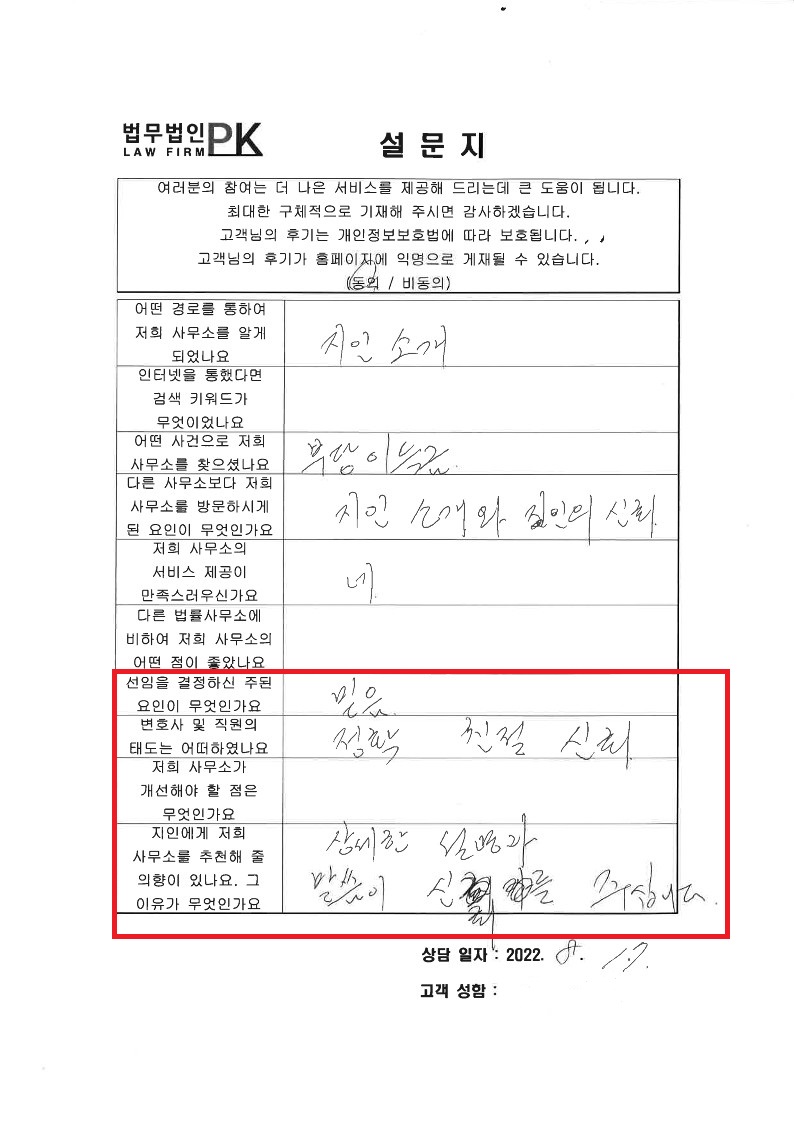 법무법인 PK
LAW FIRM
설문지
여러분의 참여는 더 나은 서비스를 제공해 드리는데 큰 도움이 됩니다.
최대한 구체적으로 기재해 주시면 감사하겠습니다.
고객님의 후기는 개인정보보호법에 따라 보호됩니다.
고객님의 후기가 홈페이지에 익명으로 게재될 수 있습니다.
(동의 / 비동의)
어떤 경로를 통하여
저희 사무소를 알게
되었나요
지인 소개
인터넷을 통했다면
검색 키워드가
무엇이었나요
어떤 사건으로 저희
사무소를 찾으셨나요
부당이득금.
다른 사무소보다 저희
사무소를 방문하시게
된 요인이 무엇인가요
지인 소개와 지인의 신뢰.
저희 사무소의
서비스 제공이
만족스러우신가요
네.
다른 법률사무소에
비하여 저희 사무소의
어떤 점이 좋았나요
선임을 결정하신 주된
요인이 무엇인가요
믿음.
변호사 및 직원의
태도는 어떠하였나요
정확 친절 신뢰.
저희 사무소가
개선해야 할 점은
무엇인가요
지인에게 저희
사무소를 추천해 줄
의향이 있나요. 그
이유가 무엇인가요
상세한 설명과
말씀이 신뢰를 주십니다.
상담 일자 : 2022. 8. 17.
고객 성함 :